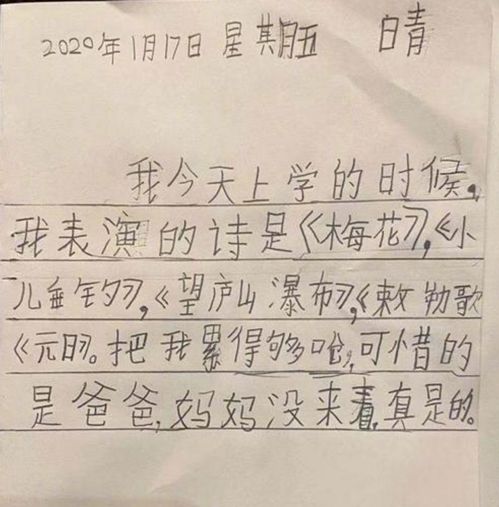 2020年1月17日 星期五 晴
我今天上学的时候，
我表演的诗是《梅花》，《小
儿垂钓》，《望庐山瀑布》，《敕勒歌
《元日》。把我累得够呛，可惜的
是爸爸，妈妈没来看，真是的。